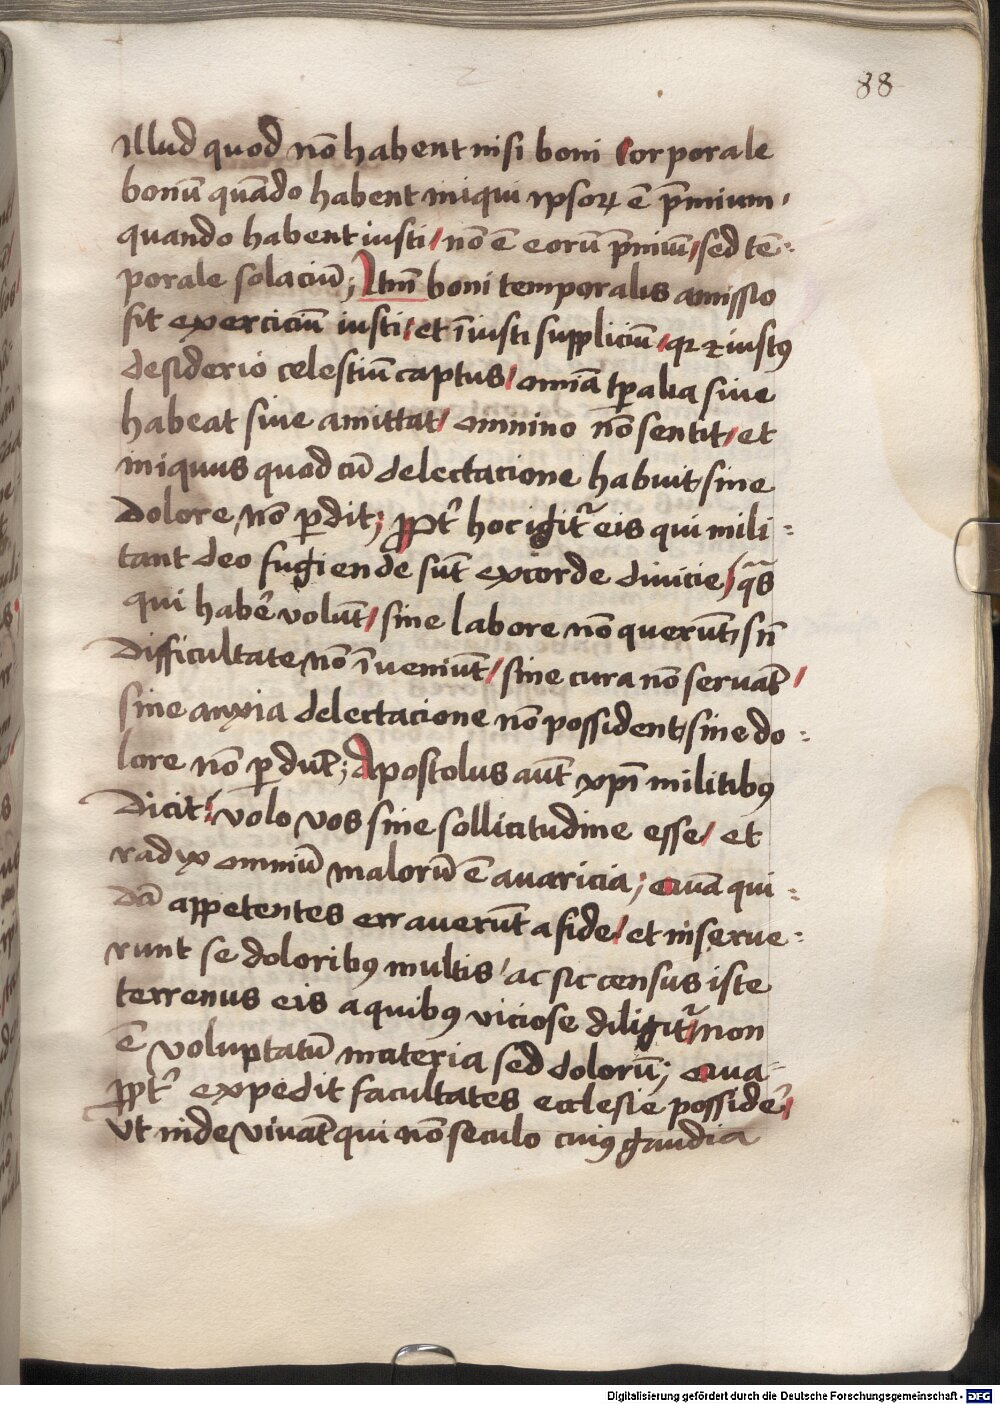 88
illud quod nō habent nisi boni Corporale
bonū quādo habent iniqui ipsoꝝ ē p̄mium ,
quando habent iusti / nō ē eorū p̄miū / sed tē⸗
porale solaciū ; Itm̄ boni temporalis amissio
sit exerciciū iusti / et īiusti suppliciū / qꝛ ⁊ iustꝰ
desiderio celestiū captus / om̄ia tꝑalia siue
habeat siue amittat / omnino nō sentit / et
iniquus quod cū delectacione habuit / sine
dolore nō ꝑdit ; ꝓpt̓ hoc igit᷑ eis qui mili⸗
tant deo fugiende sūt ex corde diuicie / qᷓs
qui haber̄ volūt / sine labore non querūt / sn̄
difficultate nō īueniūt / sine cura non seruāt /
sine anxia delectacione non possident / sine do⸗
lore nō ꝑdūt ; Apostolus aūt xp̄i militibꝰ
dicit / volo vos sine sollicitudine esse / et
radix omniū malorū ē auaricia ; Quā qui⸗
dā appetentes errauerūt a fide / et inserue⸗
runt se doloribꝰ multis / ac sic census iste
terrenus eis a quibꝰ viciose diligit᷑ / non
ē voluptatū materia sed dolorū ; Qua⸗
ꝓpt̓ expedit facultates ecclesie possider̄ /
vt inde viuāt qui nō seculo cuiꝰ gaudia
Digitalisierung gefördert durch die Deutsche Forschungsgemeinschaft - DFG